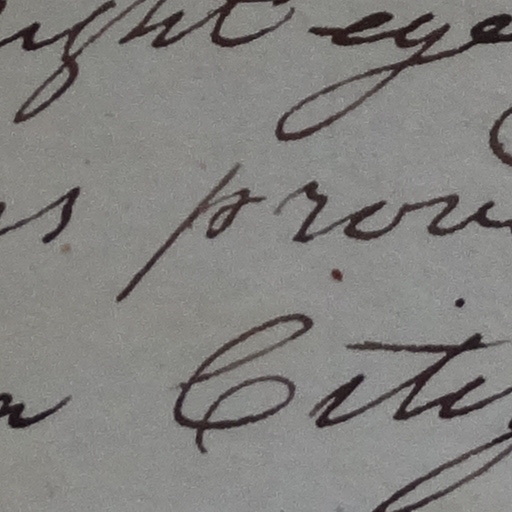 ight eye
s prou
City